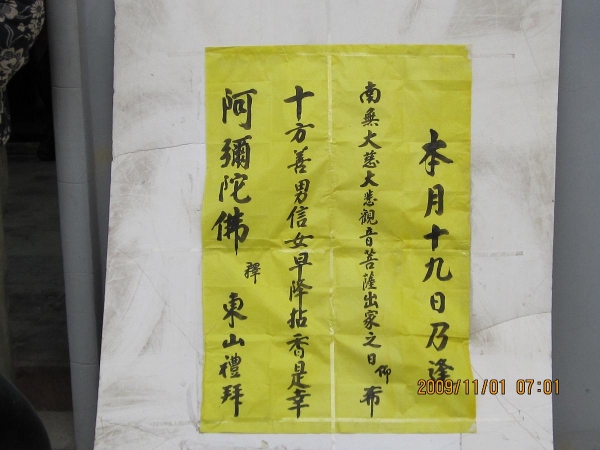 本月十九日乃逢
南無大慈大悲觀音菩薩出家之日仰布
十方善男信女早降拈香是幸
阿彌陀佛 釋東山禮拜
2009/11/01 07:01